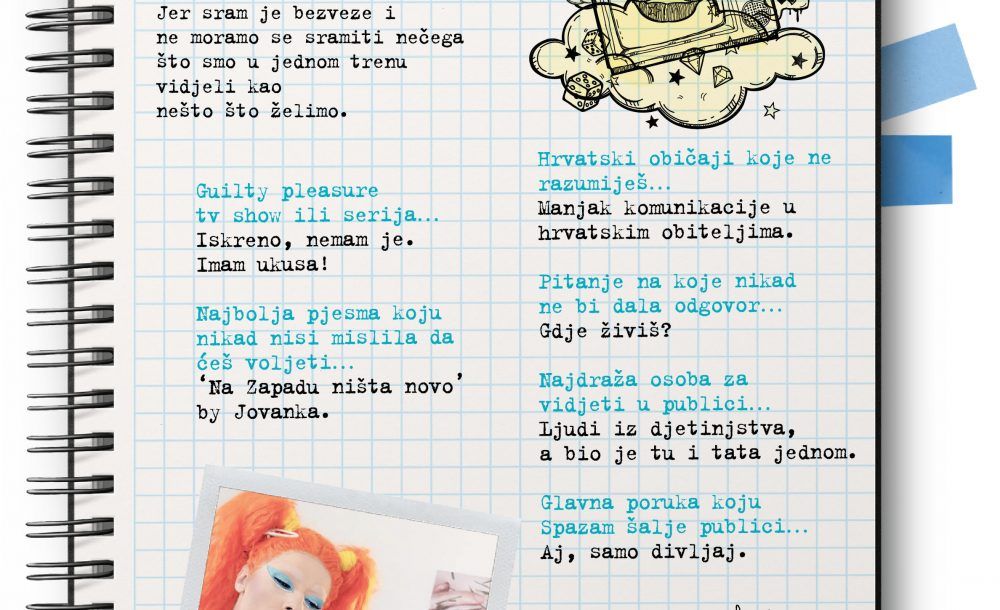 Jer sram je bezveze i
ne moramo se sramiti nečega
što smo u jednom trenu
vidjeli kao
nešto što želimo.
Guilty pleasure
tv show ili serija...
Iskreno, nemam je.
Imam ukusa!
Najbolja pjesma koju
nikad nisi mislila da
ćeš voljeti...
‘Na Zapadu ništa novo’
by Jovanka.
Hrvatski običaji koje ne
razumiješ...
Manjak komunikacije u
hrvatskim obiteljima.
Pitanje na koje nikad
ne bi dala odgovor...
Gdje živiš?
Najdraža osoba za
vidjeti u publici...
Ljudi iz djetinjstva,
a bio je tu i tata jednom.
Glavna poruka koju
Spazam šalje publici...
Aj, samo divljaj.